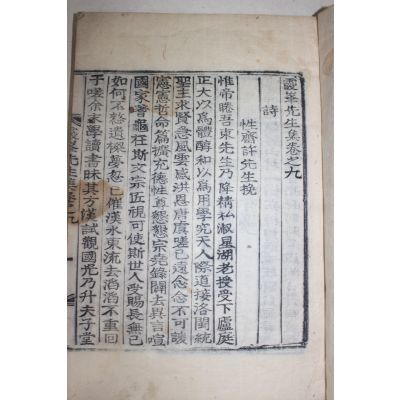 霞峯先生集卷之九
詩
性齋許先生挽
惟帝睠吾東先生乃降精私淑星湖老授受下廬庭
正大以爲體醇和以爲用學究天人際道接洛閩統
聖主求賢急風雲感洪恩唐虞嗟已遠念念不可諼
憲憲哲命篇擴充德性尊懇懇宗堯錄闢去異言喧
國家蓍龜在斯文宗匠視可使斯世人受賜長無已
如何不憖遺樑夢忽已催漢水東流去滔滔不重回
于嗟余家學讀書昧其方漢試觀國光乃升夫子堂